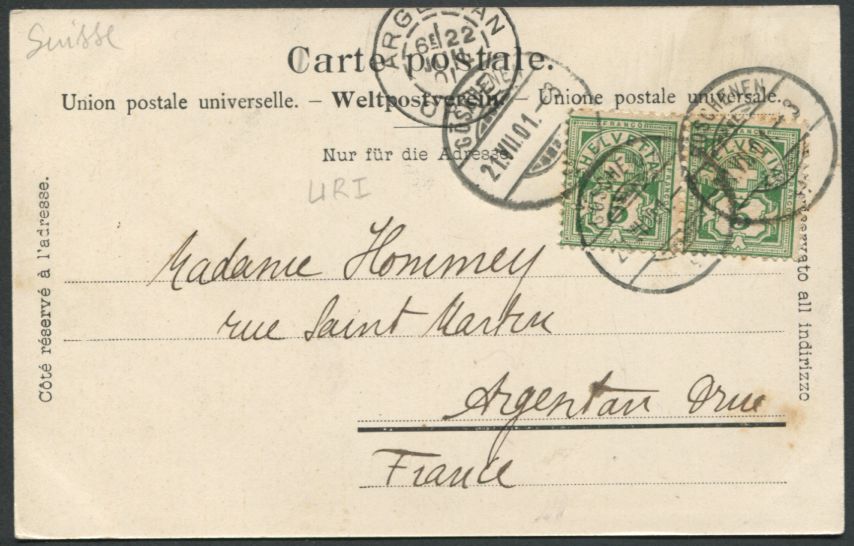 Suisse
Carte postale.
Union postale universelle. – Weltpostverein. – Unione postale universale.
Nur für die Adresse
URI
Côté réservé à l'adresse.
ARGENTAN
6E 22
01
GÖSCHENEN
21.VII.01.
GÖSCHENEN
GÖSCHE
FRANCO
HELVETIA
5
FRANCO
HELVETIA
5
Madame Hommey
rue Saint Martin
Argentan Orne
France
riservato all indirizzo